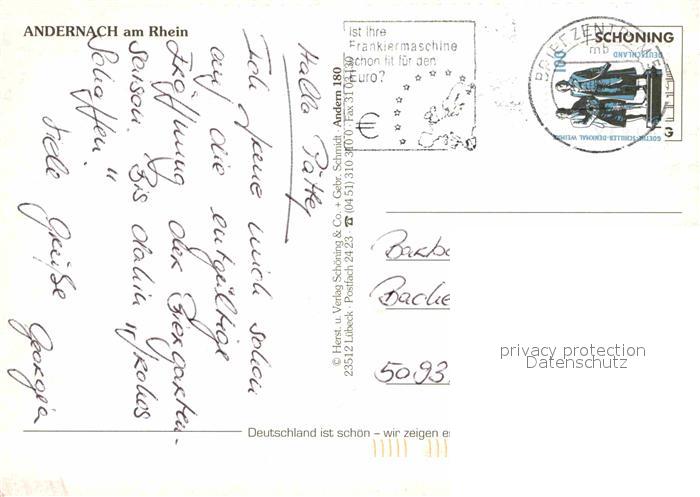 ANDERNACH am Rhein
Hallo Patty
Ich freue mich schon
auf die entgültige
Eröffnung der Biergarten-
saison. Bis dahin "frohes
Schaffen"
Viele Grüße Georgia
© Herst. u. Verlag Schöning & Co. + Gebr. Schmidt
Andern 180
23512 Lübeck · Postfach 24 23 · ☎ (04 51) 310 310 0 · Fax
Ist Ihre
Frankiermaschine
schon fit für den
Euro?
€
BRIEFZENTRUM
mb
SCHÖNING
DEUTSCHLAND
100
GOETHE-SCHILLER-DENKMAL WEIMAR
Barb
Bache
5093
privacy protection
Datenschutz
Deutschland ist schön – wir zeigen es